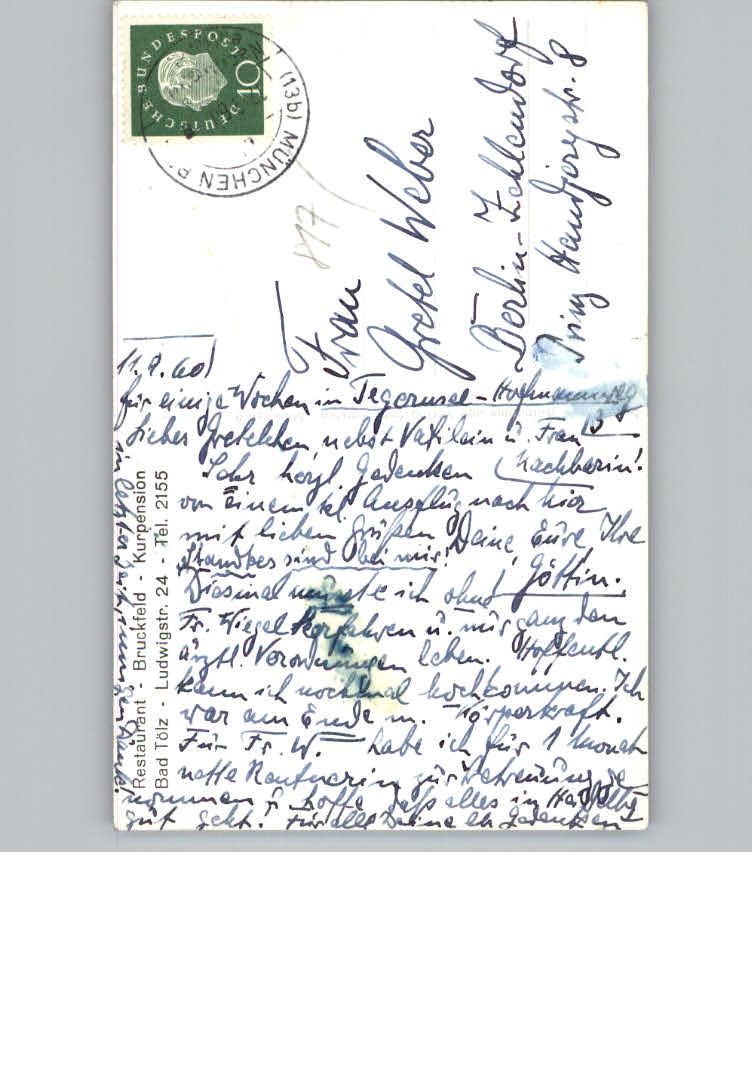 DEUTSCHE BUNDESPOST
10
DEUTSCHE
(13b) MÜNCHEN
817
Frau
Gretel Weber
Berlin-Zehlendorf
Prinz Handjerystr. 8
11.9.60
für einige Wochen in Tegernsee - Hofmannweg
3
Liebes Gretelchen, nebst Vatilein u. Frau
Nachbarin!
Sehr herzl. Gedenken
von einem kl. Ausflug nach hier
mit lieben Grüßen Deine, Eure, Ihre
sind bei mir! Göttin.
Diesmal musste ich ohne
Fr. Wiegel fortfahren u. nur ganz den
ärztl. Verordnungen leben. Hoffentl.
kann ich nochmal hochkommen. Ich
war am Ende m. Körperkraft.
Für Fr. W. habe ich für 1 Monat
nette Rentnerin zur Betreuung ge
nommen u. hoffe, daß alles in
gut geht! Für alle Deine lb. Gedenken
in letzter Zeit Dank.
Restaurant - Bruckfeld - Kurpension
Bad Tölz - Ludwigstr. 24 - Tel. 2155